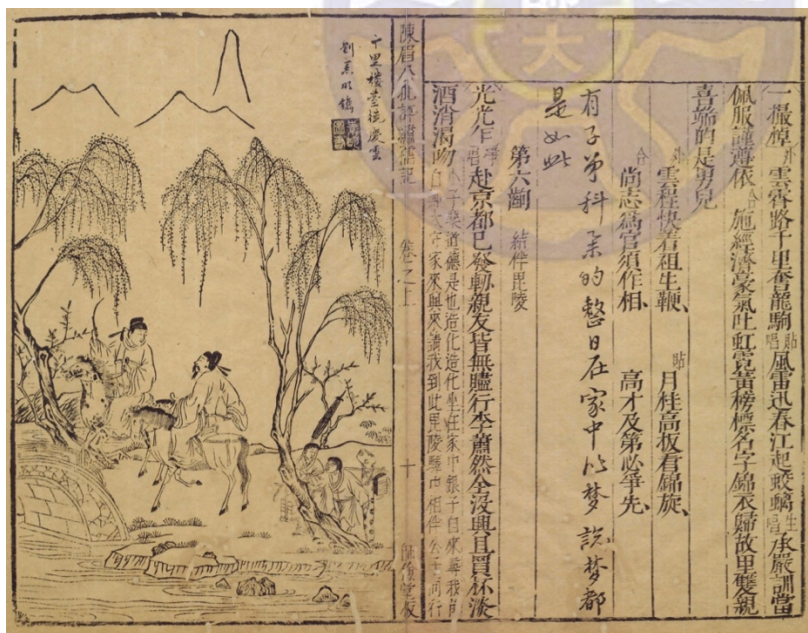 一撮棹外雲霄路千里奮龍駒貼唱風雷迅春江起蛟螭生唱承嚴訓當
佩服謹遵依合施經濟豪氣吐虹霓黃榜標名字錦衣歸故里雙親
喜端的是男兒
外雲程快着祖生鞭、貼月桂高扳看錦旋、
合尚志為官須作相、高才及第必爭先、
有子爭科第的整日在家中以夢說夢都
是如此
第六齣 結伴毘陵
光光乍淨唱赴京都已發軔親友皆無贐行李蕭然全没興且買杯淡
酒消渴吻白小子樂道德是也造化造化坐在家中銀子自來
家來興來請我到此毘陵驛中相伴公主同行
陳眉公批評繡襦記 卷之上 十 師儉堂板
千里樓臺繞慶雲
劉素明鐫